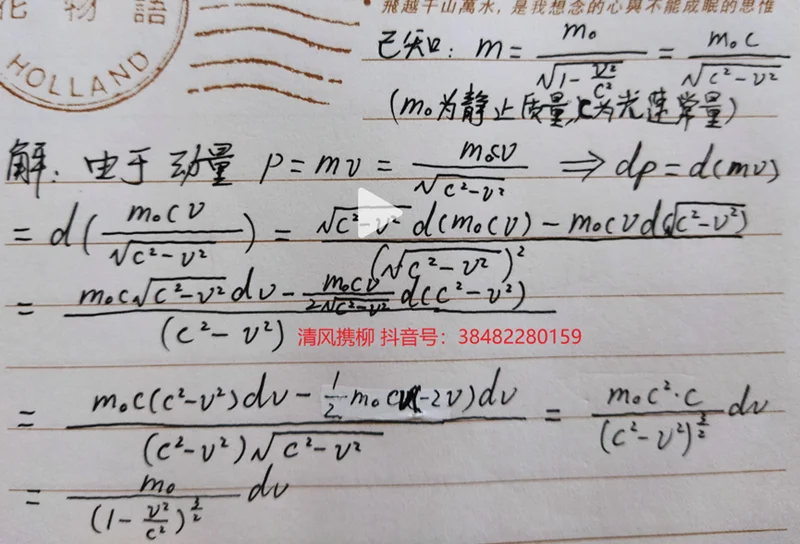 花 物 語
HOLLAND
飛越千山萬水，是我想念的心與不能成眠的思惟
已知：m = m₀/√(1-v²/c²) = m₀c/√(c²-v²)
(m₀为静止质量，c为光速常量)
解：由于动量 p = mv = m₀cv/√(c²-v²) ⇒ dp = d(mv)
= d(m₀cv/√(c²-v²)) = (√(c²-v²) d(m₀cv) - m₀cv d(√(c²-v²)))/(√(c²-v²))²
= (m₀c√(c²-v²) dv - m₀cv/(2√(c²-v²)) d(c²-v²))/(c²-v²)
清风携柳 抖音号：38482280159
= (m₀c(c²-v²)dv - ½m₀cv(-2v)dv)/((c²-v²)√(c²-v²)) = m₀c²·c/(c²-v²)^(3/2) dv
= m₀/(1-v²/c²)^(3/2) dv